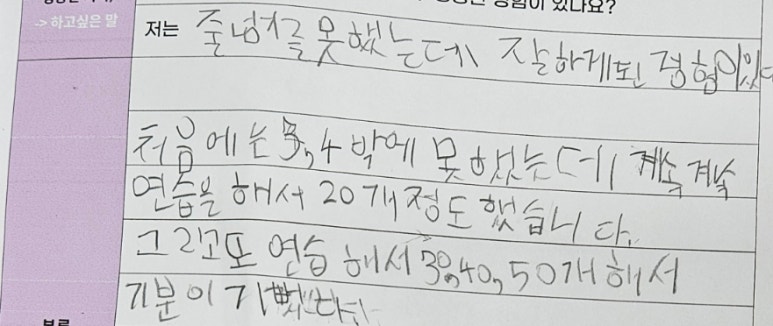 경험이 있나요?
-> 하고싶은 말
저는 줄넘기를 못했는데 잘하게된 경험이있다
처음에는 3,4 박에 못했는데 계속 계속
연습을 해서 20개정도 했습니다.
그리고또 연습 해서 30,40,50개해서
기분이 기뻤다.